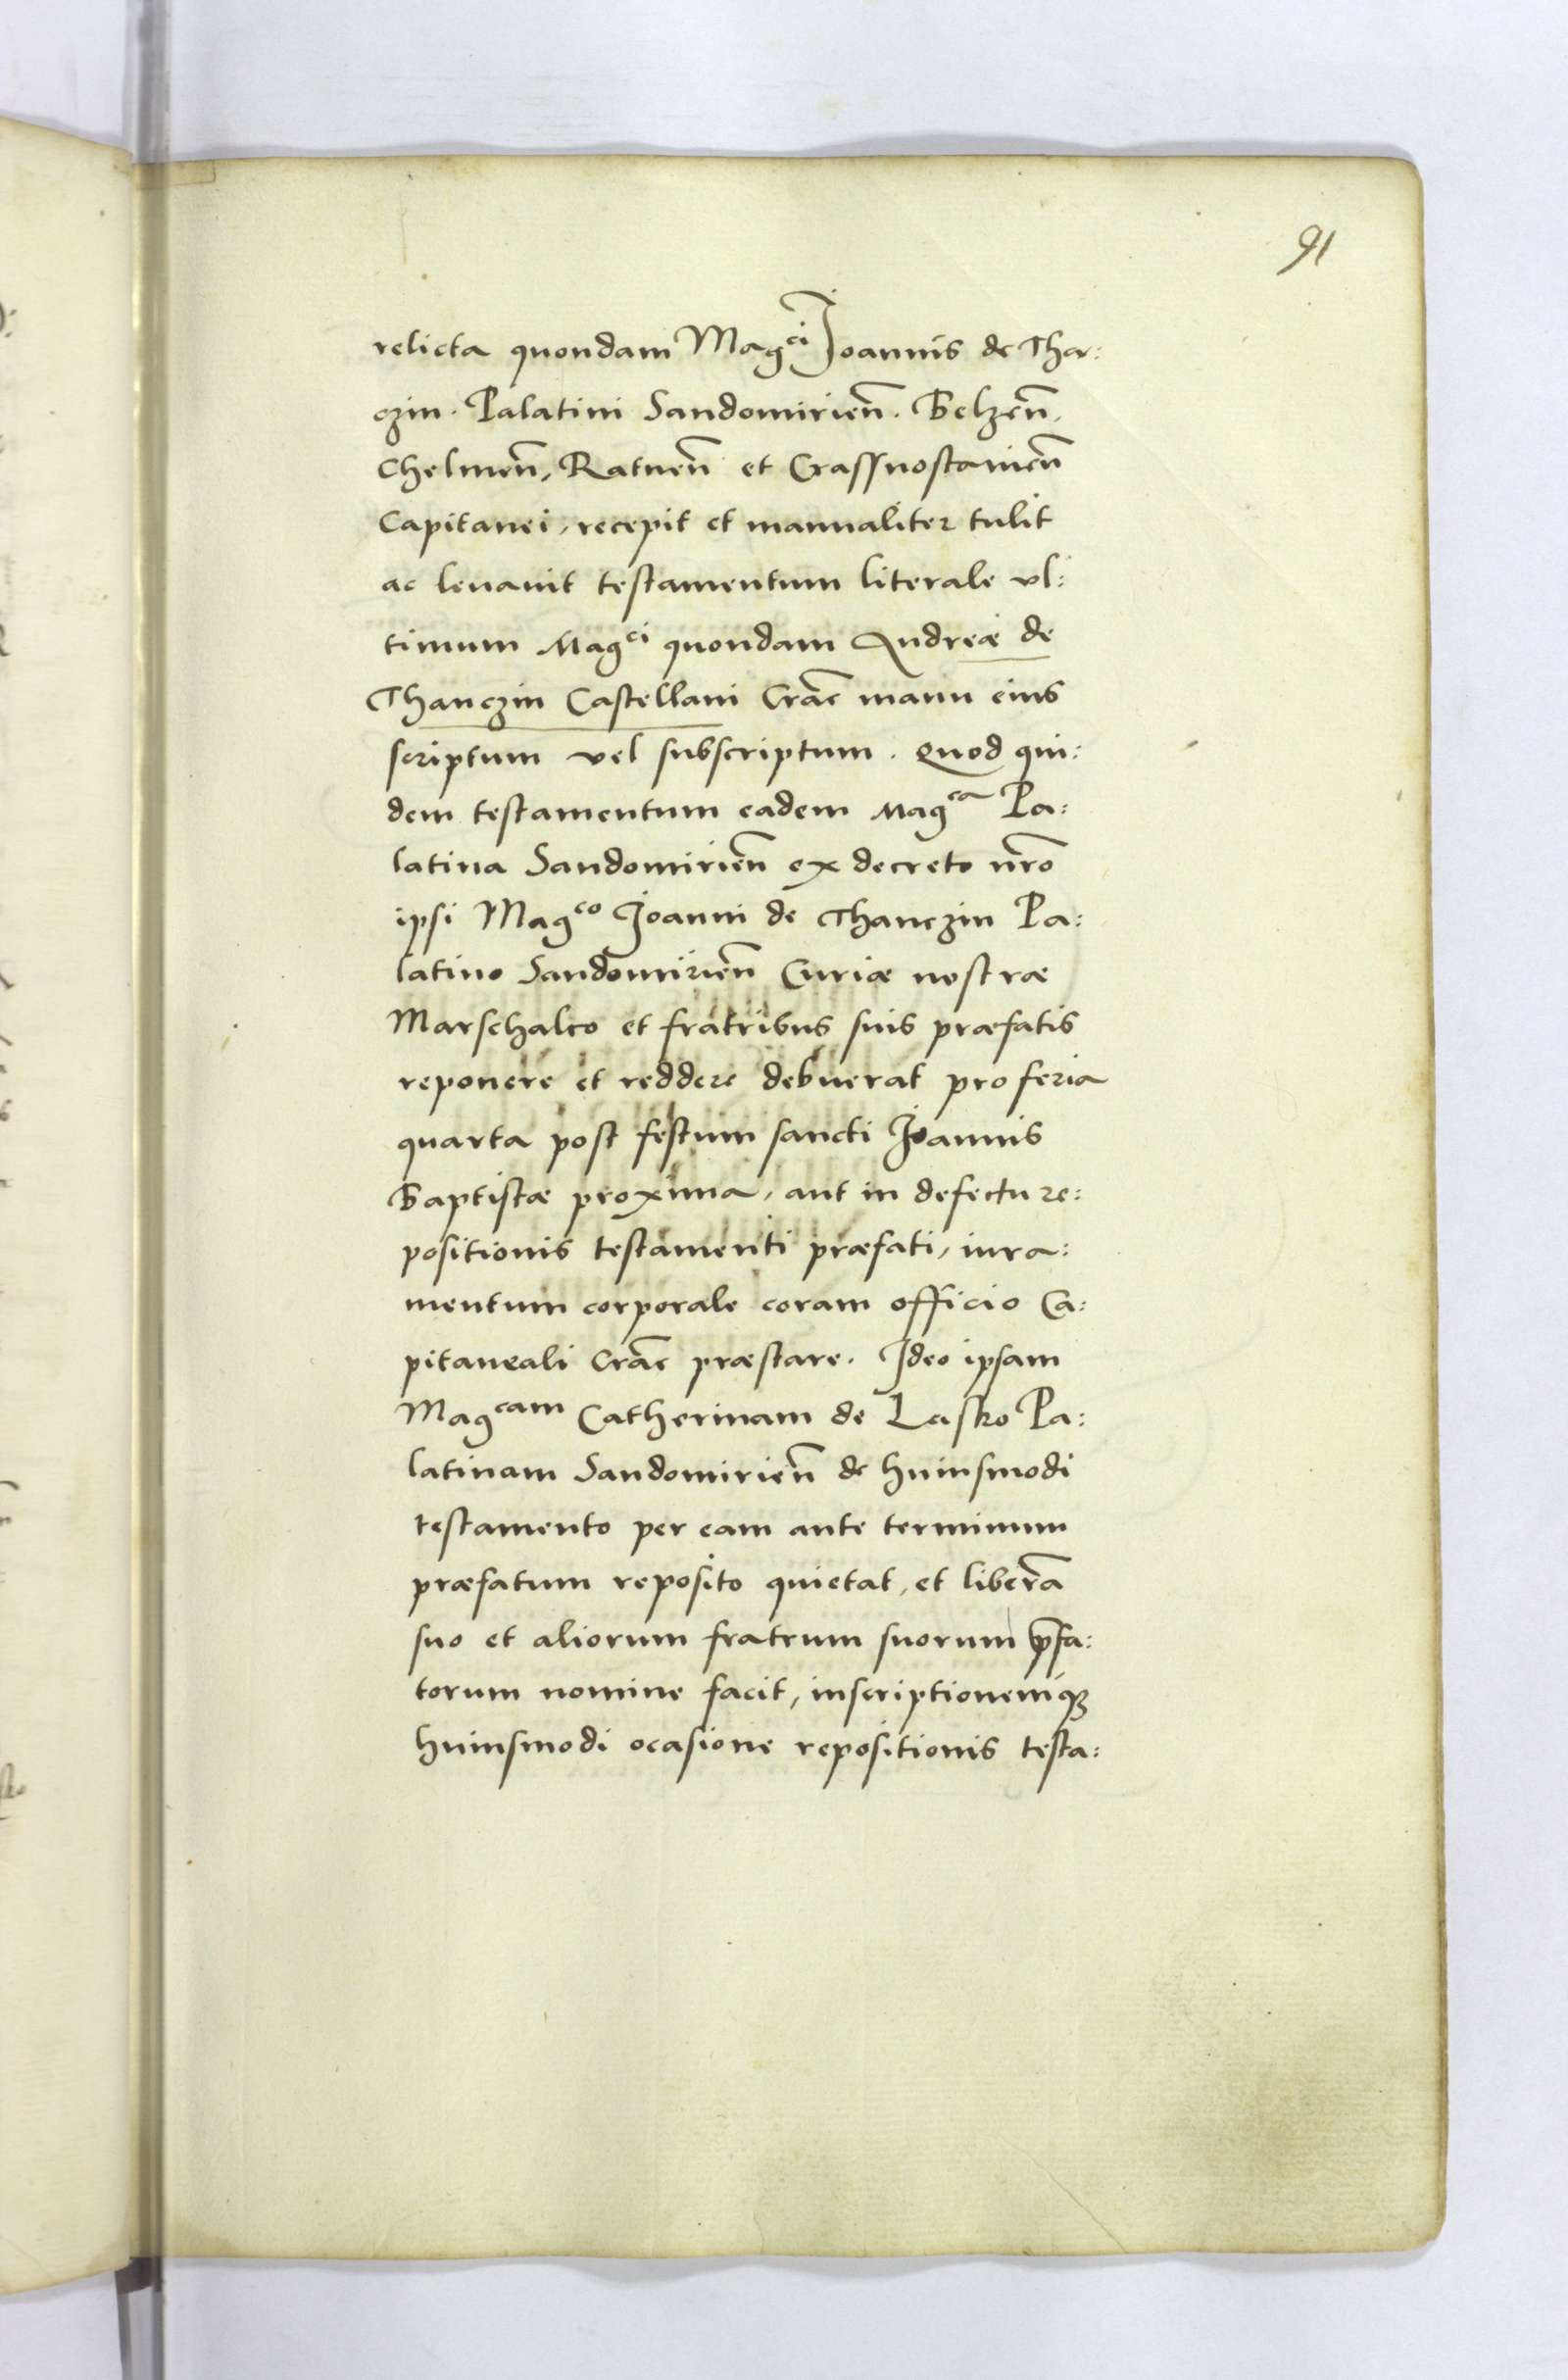 91
relicta quondam Mag^ci Joannis de Tha:
czin. Palatini Sandomirien̄. Belzen̄,
Chelmen̄, Ratnen̄ et Crassnostauien̄
Capitanei, recepit et manualiter tulit
ac leuauit testamentum literale vl:
timum Mag^ci quondam Andreæ de
Thanczin Castellani Crac̄ manu eius
scriptum vel subscriptum. Quod qui:
dem testamentum eadem Mag^ca Pa:
latina Sandomirien̄ ex decreto nr̄o
ipsi Mag^co Joanni de Thanczin Pa:
latino Sandomirien̄ Curiæ nostræ
Marschalco et fratribus suis præfatis
reponere et reddere debuerat pro feria
quarta post festum sancti Joannis
Baptistæ proxima, aut in defectu re:
positionis testamenti præfati, iura:
mentum corporale coram officio Ca:
pitaneali Crac̄ præstare. Ideo ipsam
Mag^cam Catherinam de Lasko Pa:
latinam Sandomirien̄ de huiusmodi
testamento per eam ante terminum
præfatum reposito quietat, et liberā
suo et aliorum fratrum suorum p̄fa:
torum nomine facit, inscriptionemqꝫ
huiusmodi ocasione repositionis testa: